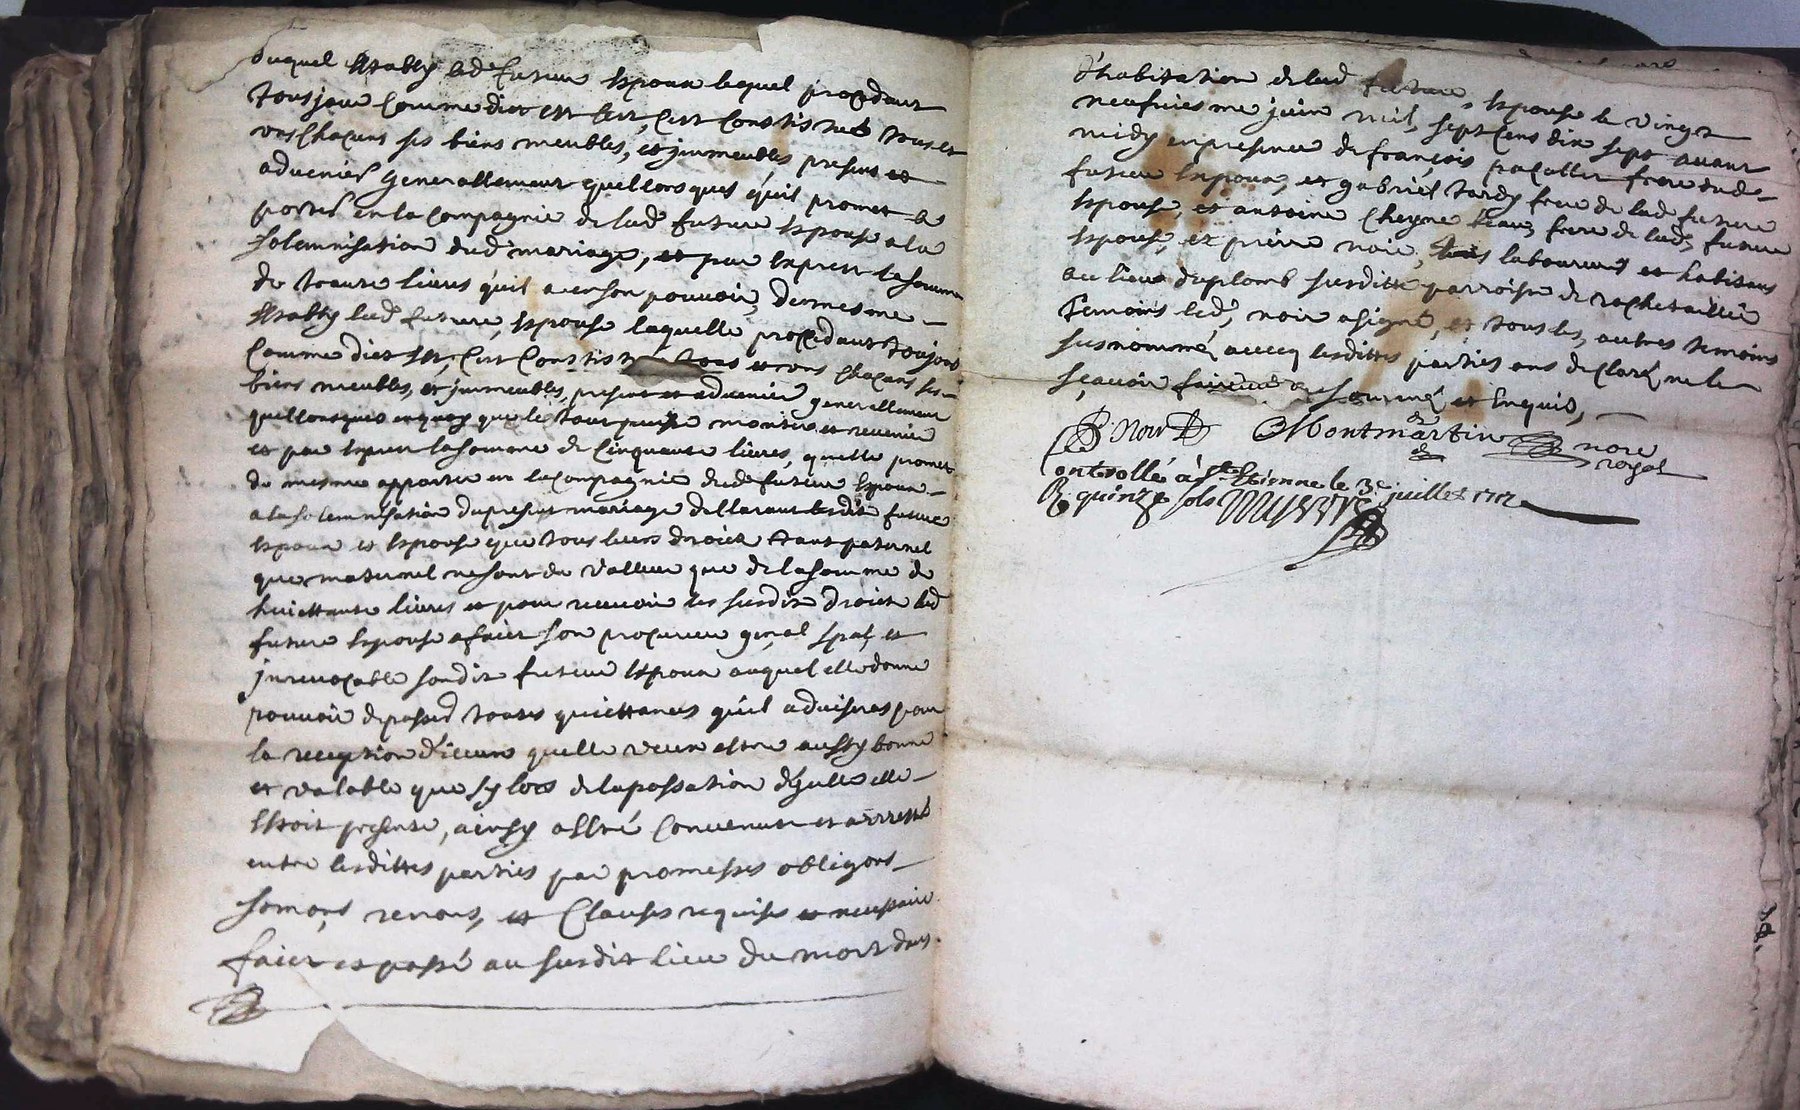 duquel estably led futeur espoux lequel proçedant
tousjour comme dict est s'est, s'est constistués tous et
uns chaçuns ses biens meubles, et jmmeubles presens et
advenier generallement quelconques qu'il promet de
porter en la compagnie de lad future espouse a la
solemnisation dud mariage, et par exprest la somme
de trante livres qu'il a en son pouvoir, de mesme
estably lad future, espouse laquelle proçedant toujour
comme dict est, s'est constistué tous et uns chaçuns ses
biens meubles, et jmmeubles, presens et advenier generallement
quelconques en quoy que le tout puisse monter et revenir
et par exprest la somme de cinquante livres, quelle promet
de mesme apporter en la compagnie dud futeur espoux
a la solemnisation du present mariage declarant lesdits future
espoux et espouse que tous leurs droicts tant paternel
que maternel ne sont de valleur que de la somme de
huictante livres et pour recevoir les susdits droicts lad
future espouse a faict son procureur genal spal et
jrrevocable sondit futeur espoux auquel elle donne
pouvoir de passer toutes quiettances qu'il adviseras pour
la reception d'iceux quelle veux estre aussy bonne
et valable que sy lors de la passation d'ycelle elle
estoit presente, ainsy a esté convenut et arresté
entre lesdittes parties par promesses obligons
somons renons, et clauses requises et necessaire
faict et passé au susdit lieu du mort dans
d'habitation de lad future, espouse le vingt
neufviesme juin mil sept cens dix sept avant
midy en presence de françois paçallet frere dud
futeur espoux, et gabriel tardy frere de lad future
espouse, et antoine cheyne beaux frere de lad future
espouse, et pierre noir, tous laboureurs et habitans
au lieu du plomb susditte parroisse de rochetaillée
temoins led, noir a signé, et tous les, autres temoins
susnommés avecq lesdittes parties ons declaré ne le
sçavoir faire de ce sommé et enquis,
P Noir
Montmartin nore
royal
Controllé à St Etienne le 3e juillet 1717
R quinze sols